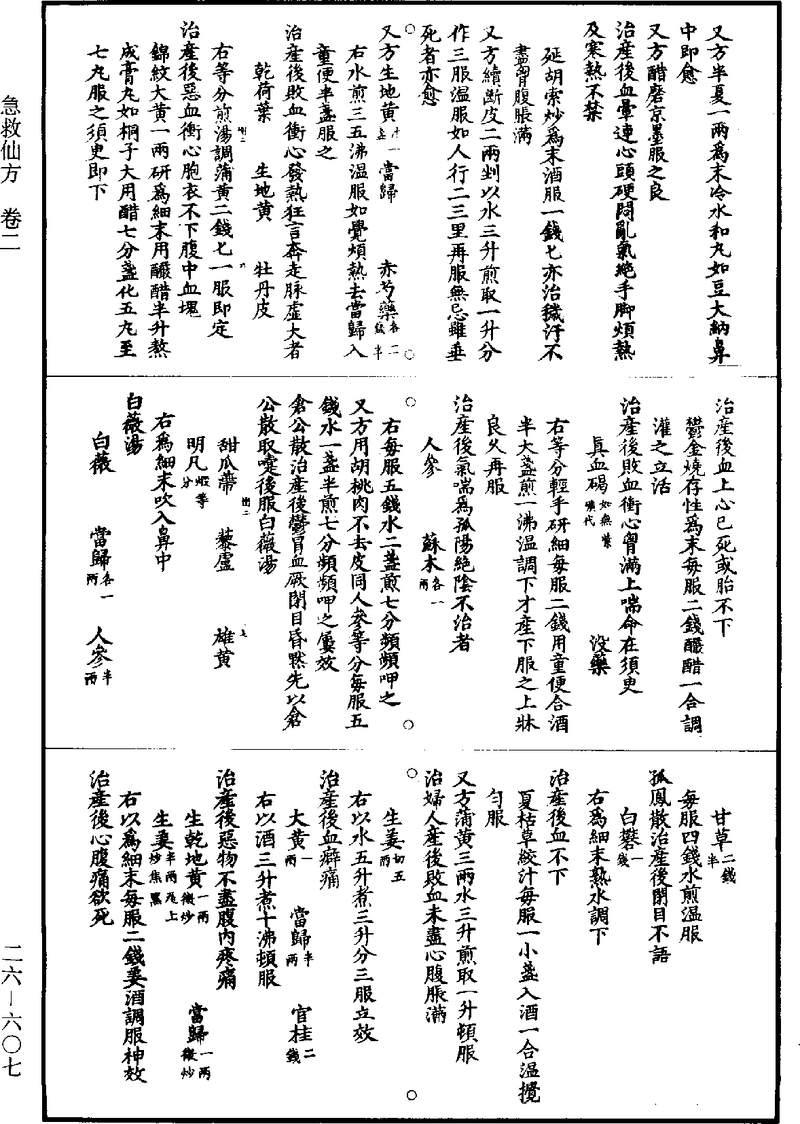 急救仙方　卷二
又方半夏一兩爲末冷水和丸如豆大納鼻
中即愈
又方醋磨京墨服之良
治產後血暈連心頭硬悶亂氣絶手脚煩熱
及寒熱不禁
延胡索炒爲末酒服一錢匕亦治穢汙不
盡胷腹脹滿
又方續斷皮二兩剉以水三升煎取一升分
作三服温服如人行二三里再服無忌雖垂
死者亦愈
又方生地黄 當歸 赤芍藥各二錢半
右水煎三五沸温服如覺煩熱去當歸入
童便半盞服之
治產後敗血衝心發熱狂言奔走脉虚大者
乾荷葉 生地黄 牡丹皮
右等分煎湯調蒲黄二錢匕一服即定
治產後惡血衝心胞衣不下腹中血塊
錦紋大黄一兩研爲細末用釅醋半升熬
成膏丸如桐子大用醋七分盞化五丸至
七丸服之須更即下
治產後血上心已死或胎不下
鬱金燒存性爲末每服二錢釅醋一合調
灌之立活
治產後敗血衝心胷滿上喘命在須更
真血碣如無紫礦代 没藥
右等分輕手研細每服二錢用童便合酒
半大盞煎一沸温調下才產下服之上牀
良久再服
治產後氣喘爲孤陽絶陰不治者
人參 蘇木各一兩
右每服五錢水二盞煎七分頻頻呷之
又方用胡桃肉不去皮同人參等分每服五
錢水一盞半煎七分頻頻呷之屢效
倉公散治產後鬱冒血厥閉目昏黙先以倉
公散取嚏後服白薇湯
甜瓜蔕 藜蘆 雄黄
明凡煅等分
右爲細末吹入鼻中
白薇湯
白薇 當歸各一兩 人參半兩
甘草二錢半
每服四錢水煎温服
孤鳳散治產後閉目不語
白礬一錢
右爲細末熱水調下
治產後血不下
夏枯草絞汁每服一小盞入酒一合温攪
勻服
又方蒲黄三兩水三升煎取一升頓服
治婦人產後敗血未盡心腹脹滿
生姜切五兩
右以水五升煮三升分三服立效
治產後血癖痛
大黄一兩 當歸半兩 官桂二錢
右以酒三升煮十沸頓服
治產後惡物不盡腹内疼痛
生乾地黄一兩微炒 當歸一兩微炒
生姜半兩瓦上炒焦黑
右以爲細末每服二錢姜酒調服神效
治產後心腹痛欲死
二六—六〇七